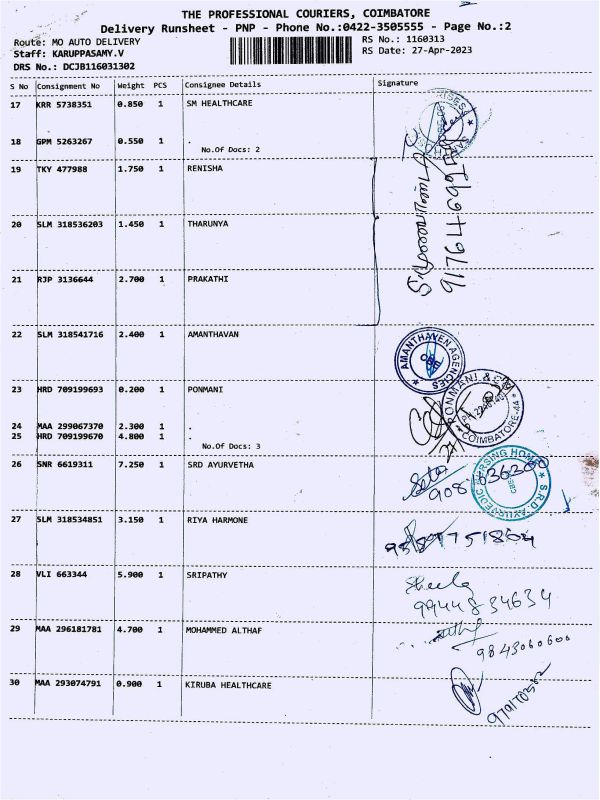 THE PROFESSIONAL COURIERS, COIMBATORE
Delivery Runsheet - PNP - Phone No.:0422-3505555 - Page No.:2
Route: MO AUTO DELIVERY RS No.: 1160313
Staff: KARUPPASAMY.V RS Date: 27-Apr-2023
DRS No.: DCJB116031302
S No Consignment No Weight PCS Consignee Details Signature
17 KRR 5738351 0.850 1 SM HEALTHCARE
18 GPM 5263267 0.550 1 .
No.Of Docs: 2
19 TKY 477988 1.750 1 RENISHA
20 SLM 318536203 1.450 1 THARUNYA
21 RJP 3136644 2.700 1 PRAKATHI
22 SLM 318541716 2.400 1 AMANTHAVAN
AMANTHAVEN AGENCIES
CBE
23 HRD 709199693 0.200 1 PONMANI
PONMANI & CO
COIMBATORE-44
24 MAA 299067370 2.300 1 .
25 HRD 709199670 4.800 1 .
No.Of Docs: 3
26 SNR 6619311 7.250 1 SRD AYURVETHA
S.R.D. AYURVEDIC NURSING HOME
27 SLM 318534851 3.150 1 RIYA HARMONE
28 VLI 663344 5.900 1 SRIPATHY
Sheela
9944834634
29 MAA 296181781 4.700 1 MOHAMMED ALTHAF
9843060600
30 MAA 293074791 0.900 1 KIRUBA HEALTHCARE